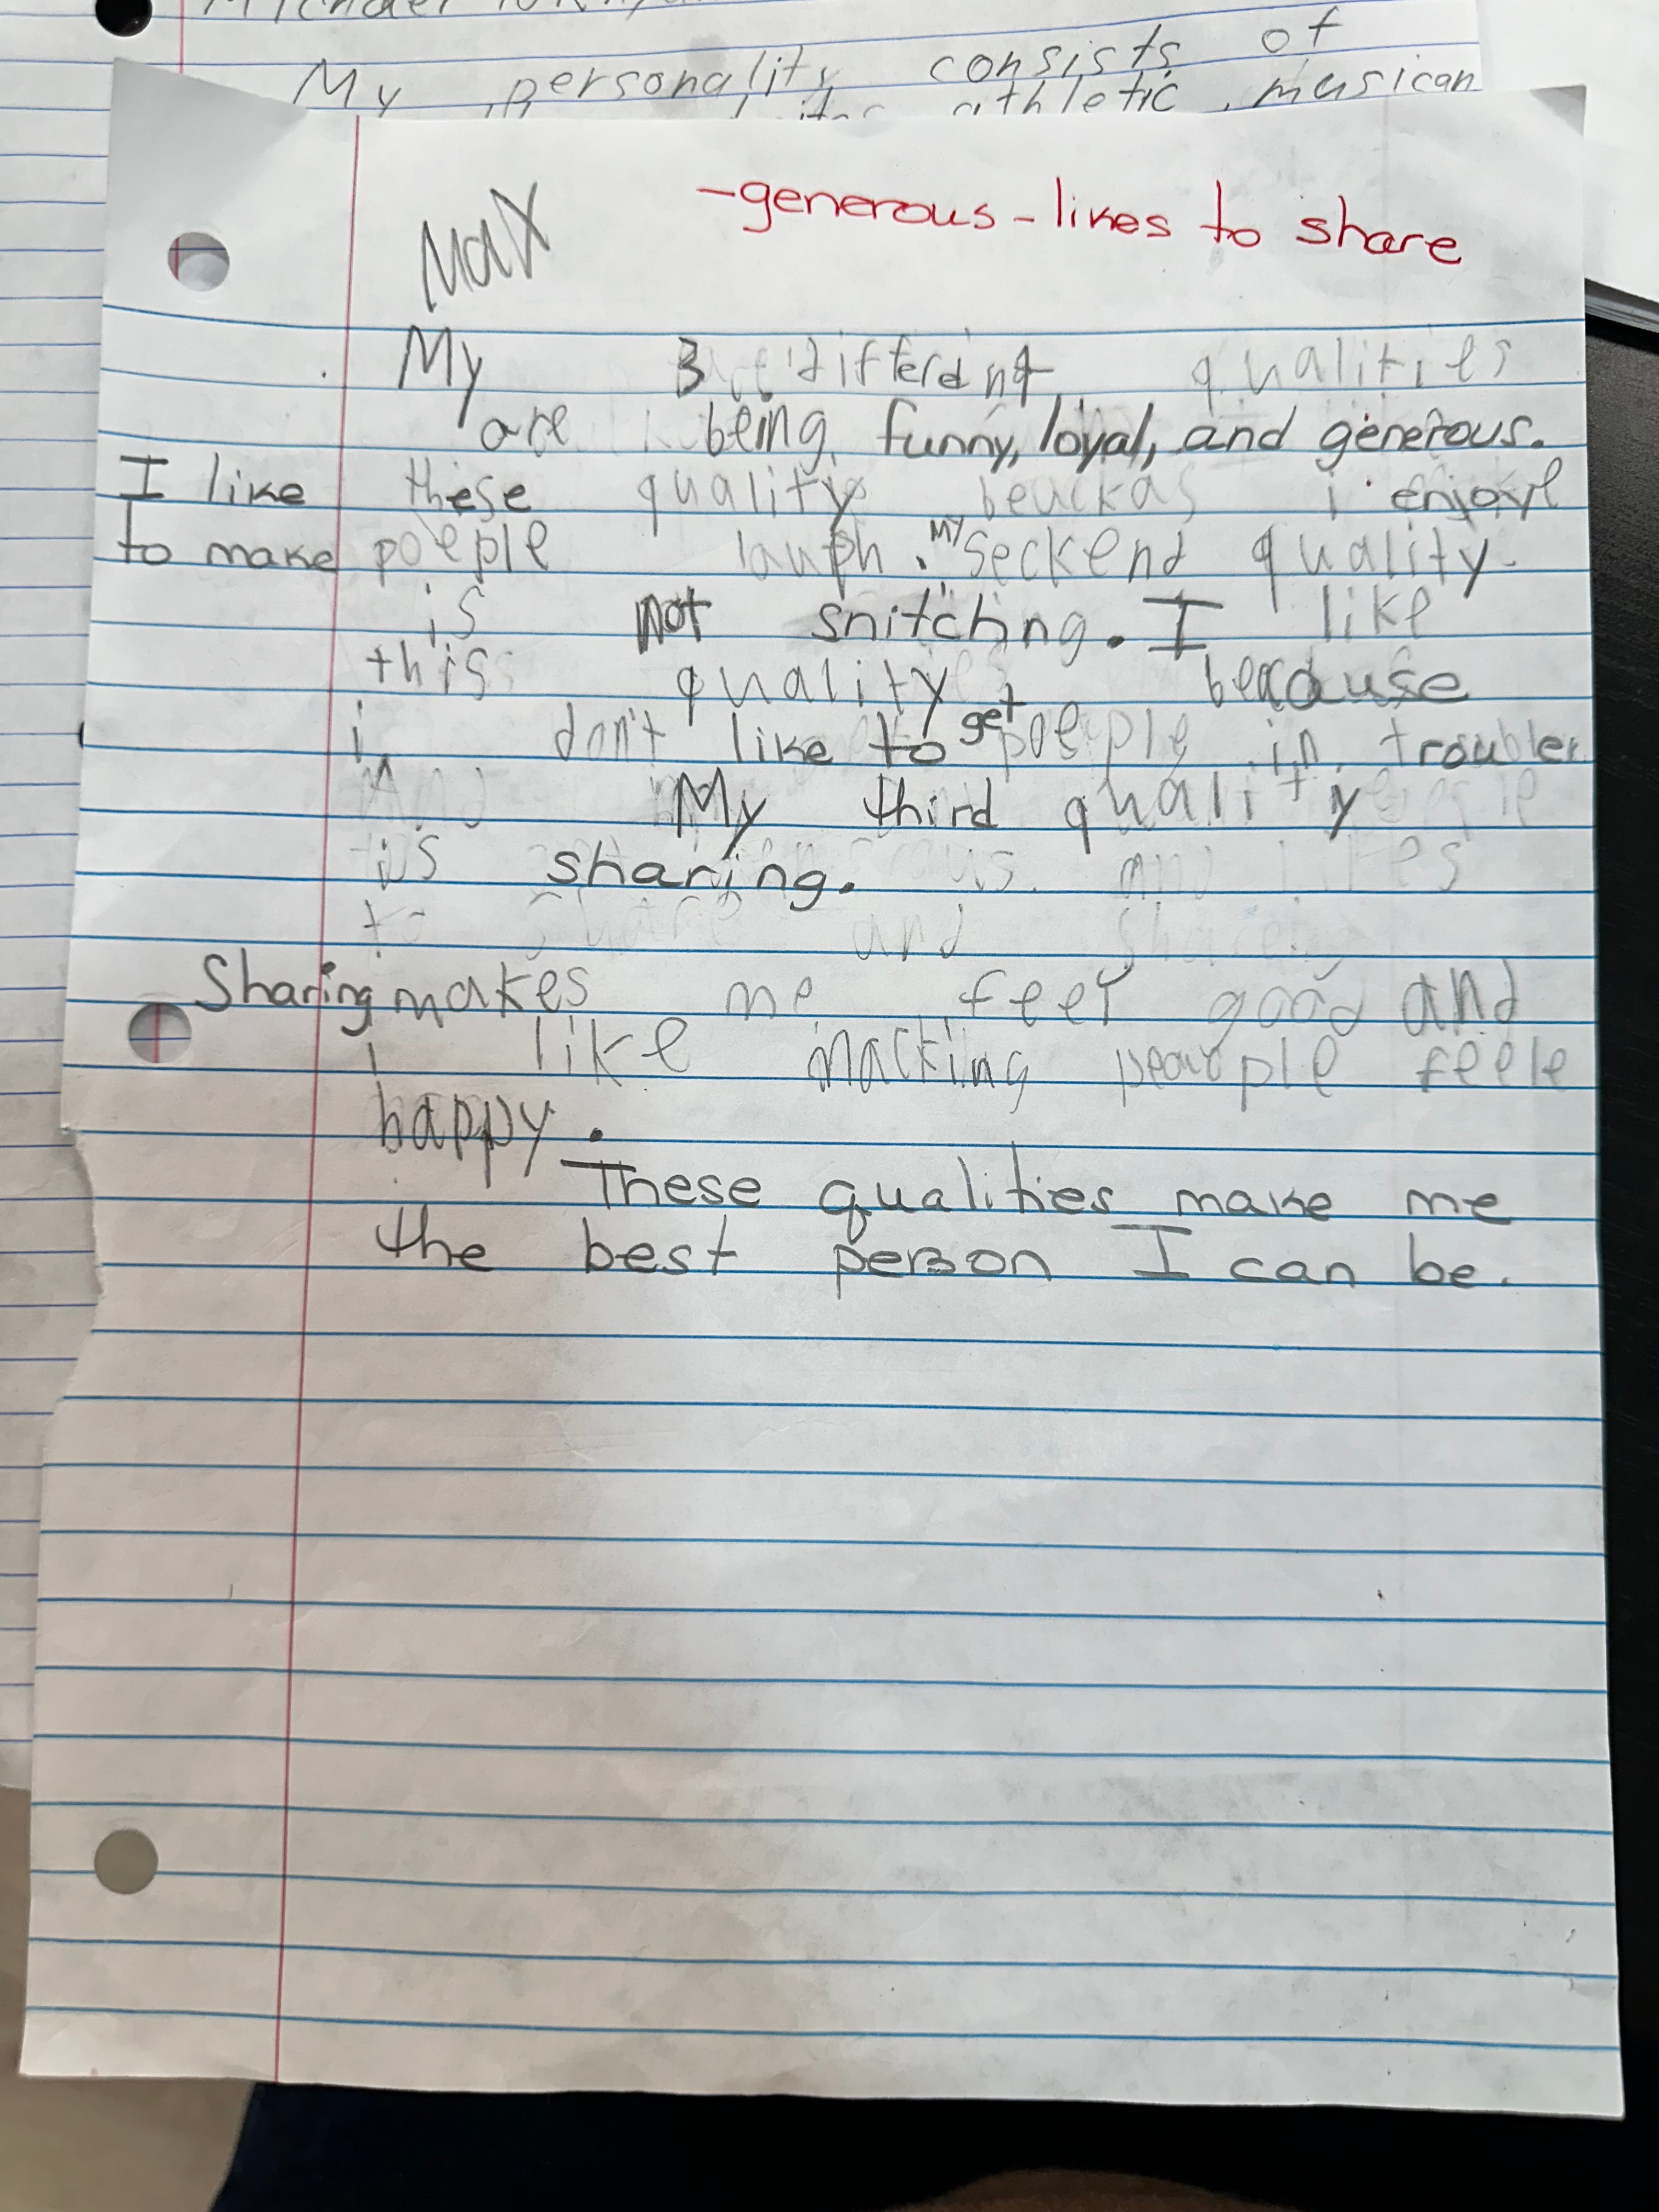 My personality consists of
athletic, musican
-generous - likes to share
Max
My 3 differant qualities
are being funny, loyal, and generous.
I like these quality beuckas i enjoy
to make poeple laugh. My seckend quality
is not snitching. I like
this quality because
i don't like to get poeple in trouble
My third quality
is sharing.
Sharing makes me feel good and
i like macking pearple feele
happy.
These qualities make me
the best person I can be.